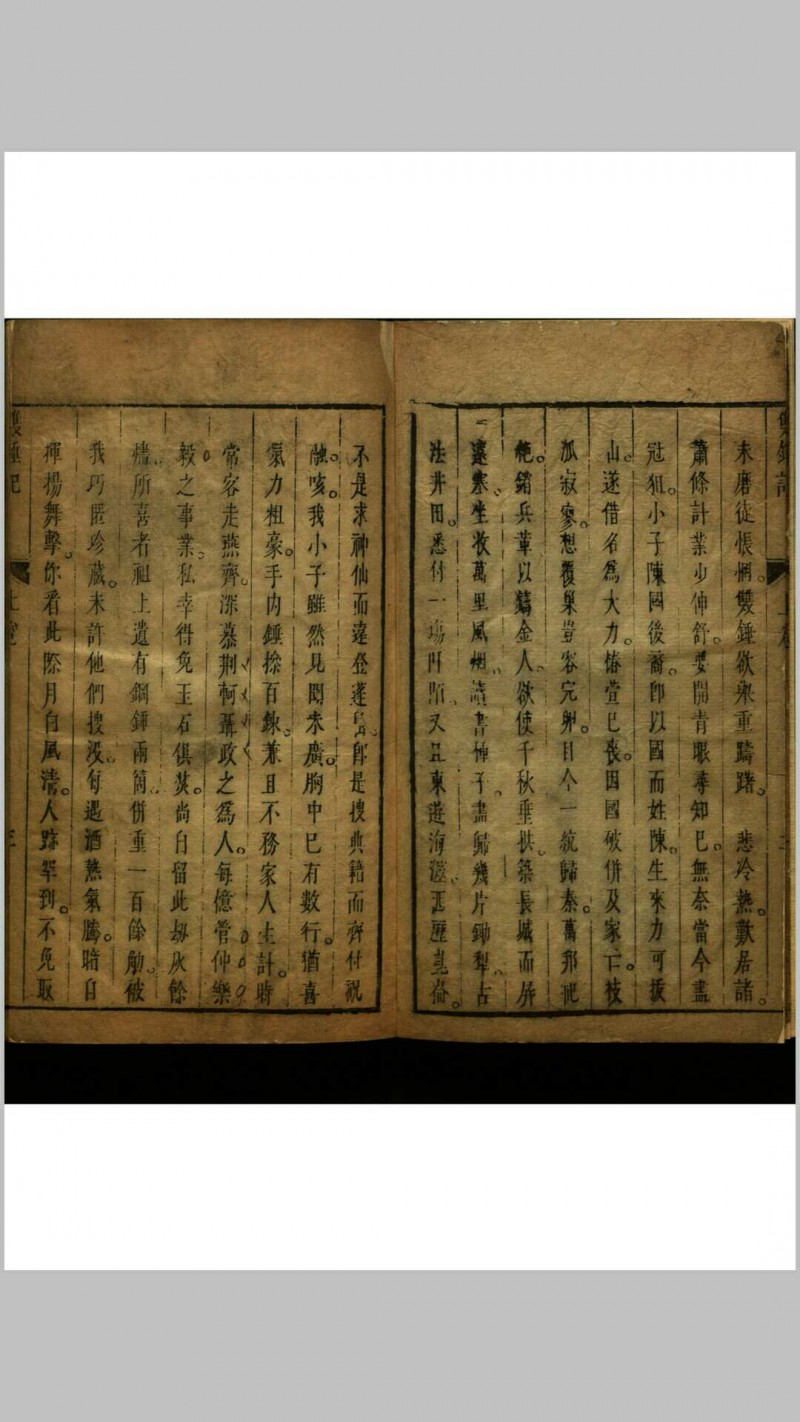 未磨從悵惘雙錘欲舉重躊躇。悲冷熱數居諸。
蕭條計業少伸舒。要開青眼尋知已。無奈當今盡
冠狙。小子陳國後裔。卽以國而姓陳。生來力可拔
山。遂借名爲大力。椿萱已喪。因國破併及家亡。枝
孤寂寥。想覆巢豈容完卵。目今一統歸秦。萬邦
絶。銷兵革以鑄金人。欲使千秋垂拱。築長城而屏
塞。生收萬里風烟。讀書種子。盡歸幾片鋤犁。古
法井田。悉付一塲阡陌。又且東遊海滋。西歷
不是求神仙而遠登蓬島。卽是搜典籍而齊付祝
融。咳。我小子雖然見聞未廣。胸中已有數行。猶喜
氣力粗豪。手內錘捺百鍊。兼且不務家人生計。時
常客走燕齊。深慕荆軻聶政之爲人。每憶管仲樂
毅之事業。私幸得免玉石俱焚。尚自留此刼灰餘
燼。所喜者祖上遺有鋼錘兩箇。併重一百餘觔。被
我巧匿珍藏。未許他們搜沒。每遇酒熱氣騰。暗自
揮揚舞擊。你看此際月白風清。人跡罕到。不免取
雙錘記
上卷
三